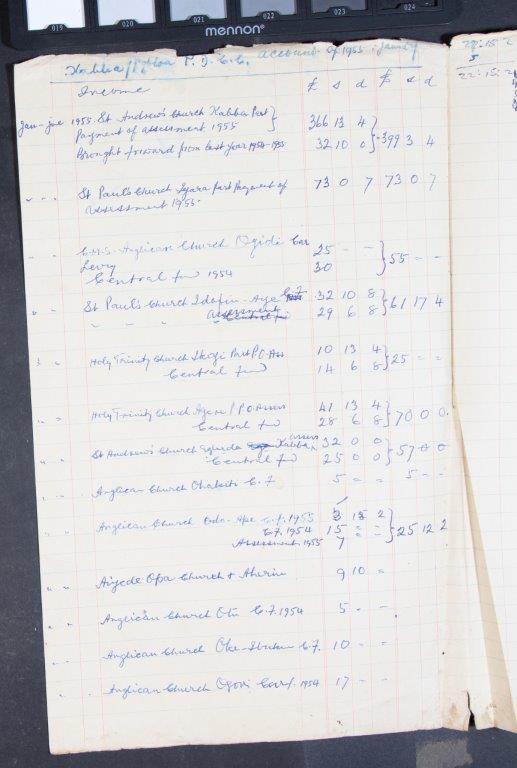 019 020 021 022 023 024
mennon®
P.D.C.C. Account of 1955
Income £ s d £ s d
1955 St Andrew's Church Kabba Part
Payment of assessment 1955 366 13 4
Brought forward from last year 1954-1955 32 10 0 399 3 4
St Paul's Church Iyara part payment of 73 0 7 73 0 7
assessment 1955
C.M.S. Anglican Church Ogidi Car 25 - -
Levy 30 55 - -
Central fd 1954
St Paul's Church Idofin 32 10 8
29 6 8 61 17 4
Holy Trinity Church Ikoyi Part P.O. Ass 10 13 4
Central fd 14 6 8 25 = =
Holy Trinity Church P.O. Assess 41 13 4
Central fd 28 6 8 70 0 0
St Andrew's Church Egunda Kabba assess 32 0 0
Central fd 25 0 0 57 0 0
Anglican Church C.F 5 = = 5 - -
Anglican Church Odo-Ape C.F. 1955 3 12 2
C.F. 1954 15 = =
Assessment 1955 7 = = 25 12 2
Aiyede Opa Church & Aherin 9 10 =
Anglican Church Otu C.F. 1954 5 - -
Anglican Church Oke-Ibukun C.F. 10 - -
Anglican Church 1954 17 - -